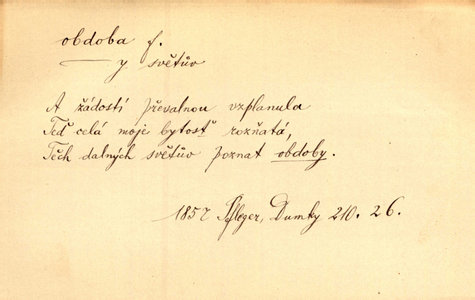 obdoba f.
— y světův
A žádostí převalnou vzplanula
Teď celá moje bytosť rozňatá,
Těch dalných světův poznat obdoby.
1857 Pfleger, Dumky 210. 26.